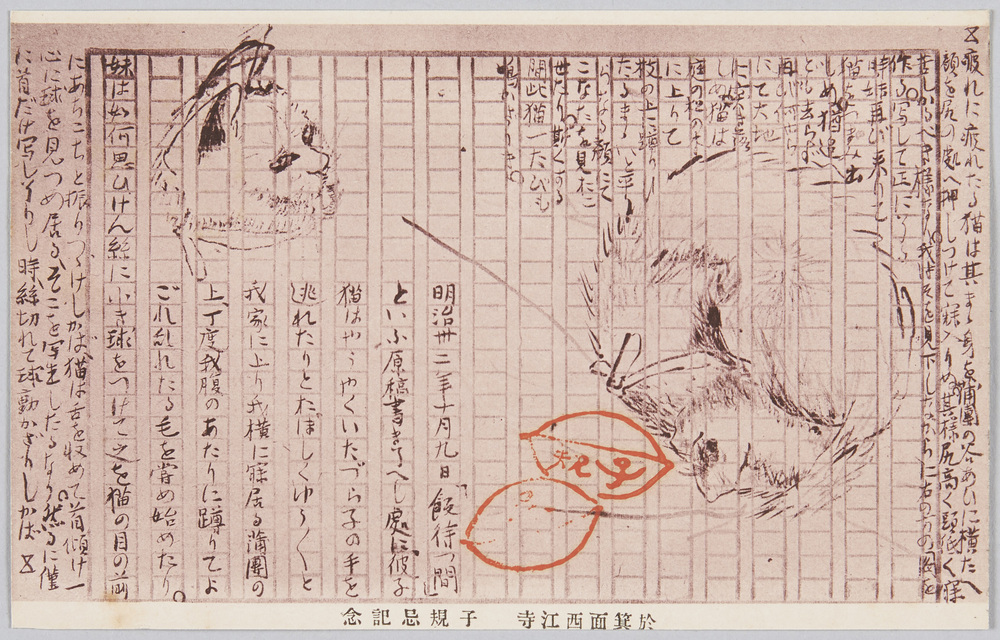 明治卅二年十月九日「飯待つ間」
といふ原稿書き了へし処に彼子
猫はやうやくいたづら子の手を
逃れたりとおぼしくゆうゆうと
我家に上り我横に寐居る蒲團の
上、丁度我腹のあたりに蹲りてよ
ごれ乱れたる毛を嘗め始めたり。
妹は如何思ひけん絲に小き球をつけて之を猫の目の前
にあちこちと振りつゝけしかば猫は舌を收めて首傾け一
心に球を見つめ居るそこを写生したるなり。然るに僅
に首だけ写し了りし時絲切れて球動かざりしかば
疲れに疲れたる猫は其まゝ身を蒲團の谷あひに横たへ
顔を尾の処へ押しつけて寐入りぬ其様尻高く頭低く寐
苦しかるべき様なり我はそを見下しながらに右の方の図を
作る。写して正に了る
時妹再び来りて
猫をつまみ出
しぬ猶追へ
ども去らず
再び何やら
にて大地
に
しめ猫は
庭の松の木
に上りて
枝の上に蹲り
たるまゝいと平
らかなる顔にて
こなたを見
せたり。斯くする
間此猫一たびも
鳴かざりき。
子規
於箕面西江寺 子規忌記念